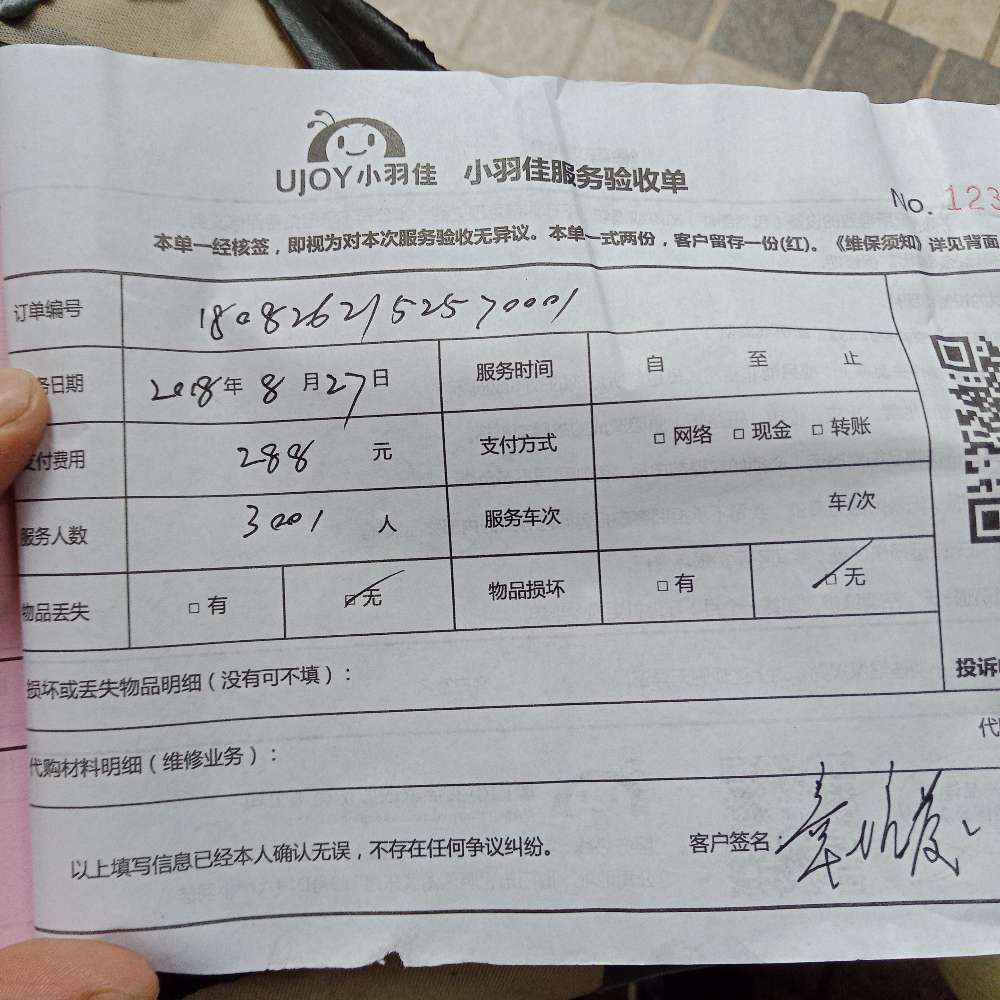 UJOY小羽佳 小羽佳服务验收单
No. 123
本单一经核签，即视为对本次服务验收无异议。本单一式两份，客户留存一份(红)。《维保须知》详见背面
订单编号 1808262152570001
务日期 2018年8月27日 服务时间 自 至 止
支付费用 288 元 支付方式 □ 网络 □ 现金 □ 转账
服务人数 3001 人 服务车次 车/次
物品丢失 □ 有 □ 无 物品损坏 □ 有 □ 无
损坏或丢失物品明细（没有可不填）：
投诉
代购材料明细（维修业务）：
代
以上填写信息已经本人确认无误，不存在任何争议纠纷。
客户签名：